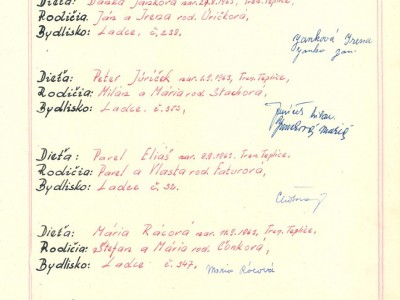 Dieťa: Danka Janková nar. 1963, Tren. Teplice,
Rodičia: Ján a Irena rod. Uričková,
Bydlisko: Ladce, č. 238.
Janková Irena
Janko Ján.
Dieťa: Peter Juríček nar. 6.9.1963, Tren. Teplice,
Rodičia: Milan a Mária rod. Stachová,
Bydlisko: Ladce č. 573,
Juríček Milan
Dieťa: Pavel Eliáš nar. 9.9.1963, Tren. Teplice,
Rodičia: Pavel a Vlasta rod. Faturová,
Bydlisko: Ladce č. 36.
Dieťa: Mária Rácová nar. 1963, Tren. Teplice,
Rodičia: Štefan a Mária rod. Cönková,
Bydlisko: Ladce č. 347.
Mária Rácová